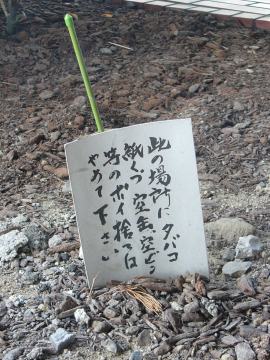 此の場所にタバコ
紙くづ空缶空ビン
等のポイ捨ては
やめて下さい